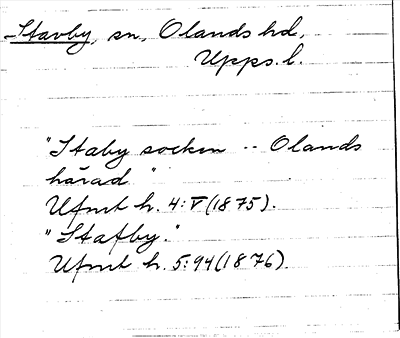 Stavby, sn, Olands hd,
Upps. l.
"Staby socken -- Olands
härad"
Ufmt h. 4: V (1875).
"Stafby."
Ufmt h. 5: 94 (1876).